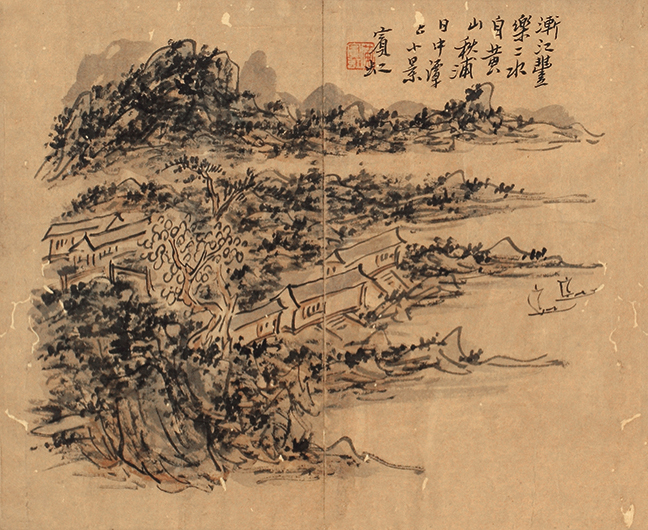 漸江豐
樂二水
自黃
山秋浦
日中潭
上小景
賓虹